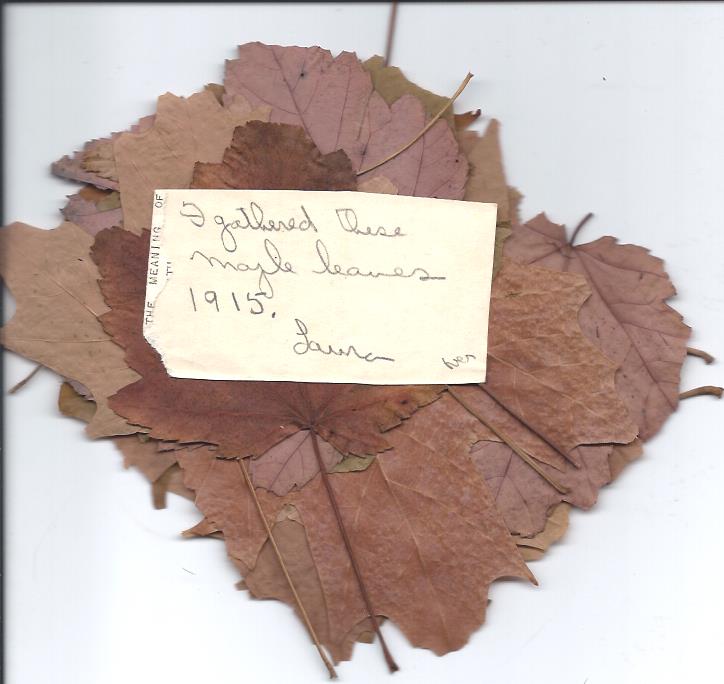 I gathered these
maple leaves
1915.
Laura
over
THE MEANING OF